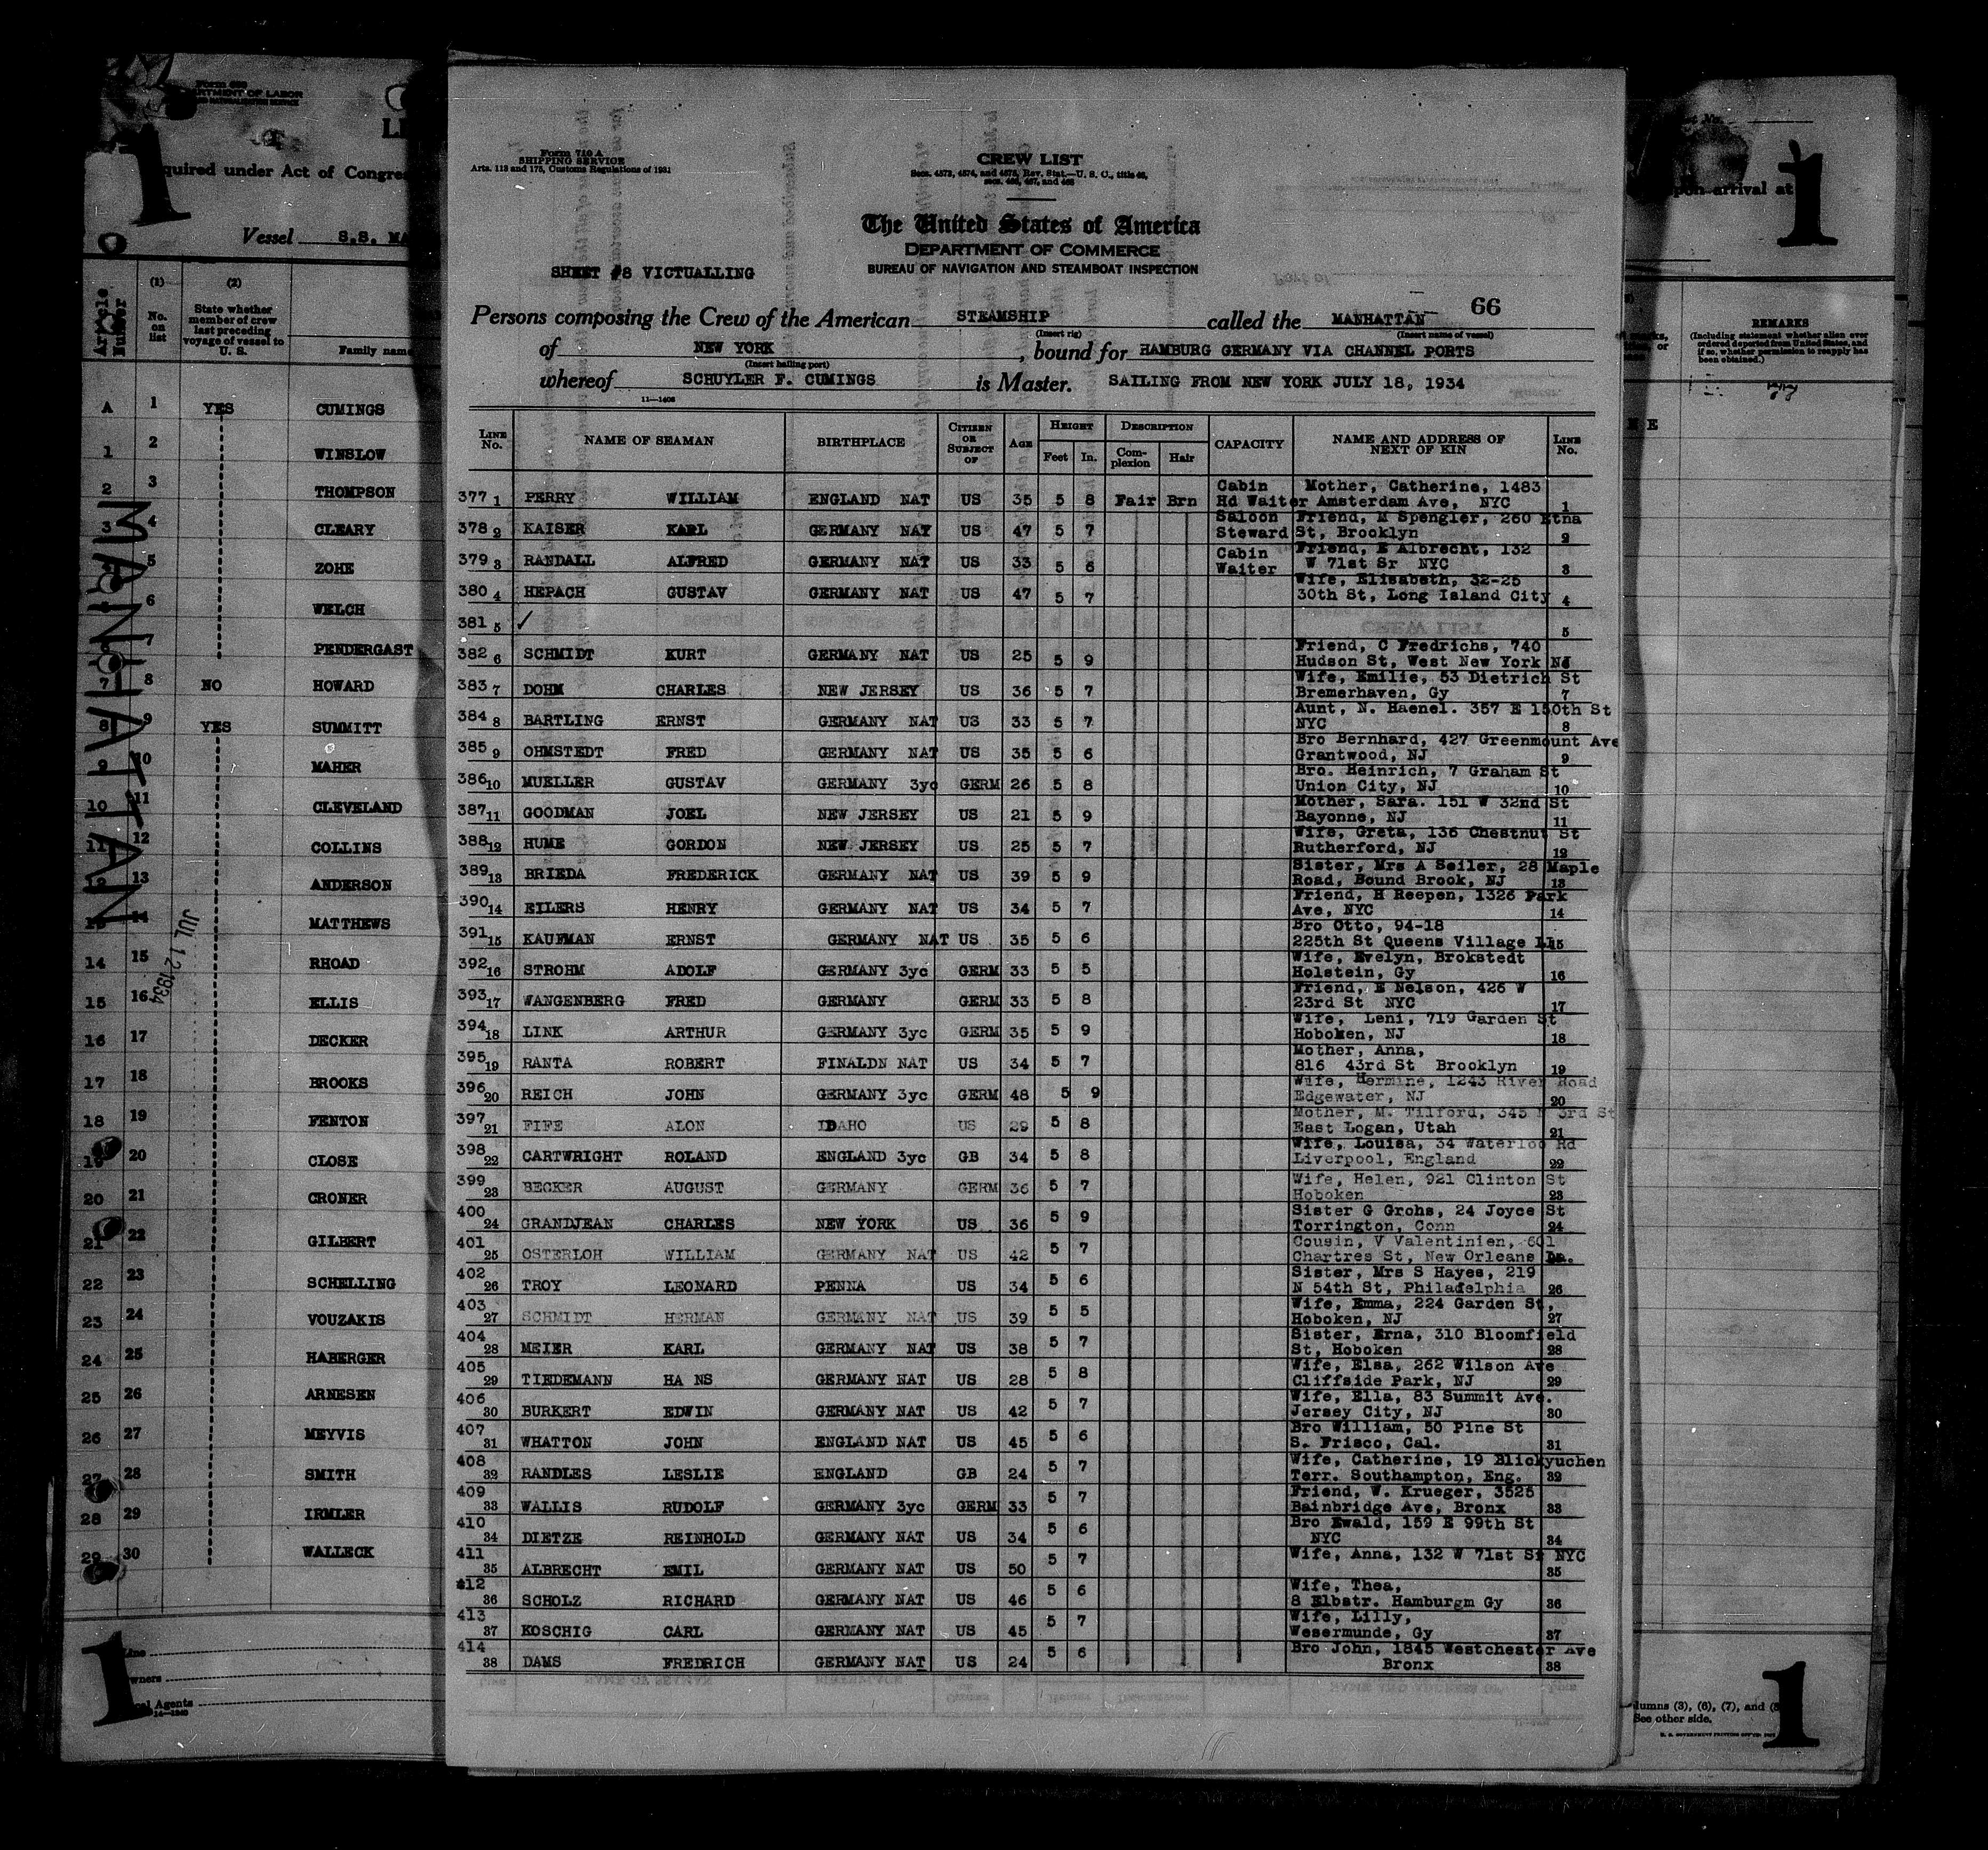 Form 710 A
SHIPPING SERVICE
Arts. 113 and 175, Customs Regulations of 1931
CREW LIST
Secs. 4573, 4574, and 4575, Rev. Stat.—U. S. C., title 46,
secs. 466, 467, and 468
The United States of America
DEPARTMENT OF COMMERCE
BUREAU OF NAVIGATION AND STEAMBOAT INSPECTION
SHEET #8 VICTUALLING
66
Persons composing the Crew of the American STEAMSHIP called the MANHATTAN
(Insert rig) (Insert name of vessel)
of NEW YORK, bound for HAMBURG GERMANY VIA CHANNEL PORTS
(Insert hailing port)
whereof SCHUYLER F. CUMINGS is Master. SAILING FROM NEW YORK JULY 18, 1934
11—1408
LINE No. NAME OF SEAMAN BIRTHPLACE CITIZEN OR SUBJECT OF AGE HEIGHT Feet In. DESCRIPTION Complexion Hair CAPACITY NAME AND ADDRESS OF NEXT OF KIN LINE No.
377 1 PERRY WILLIAM ENGLAND NAT US 35 5 8 Fair Brn Cabin Hd Waiter Mother, Catherine, 1483 Amsterdam Ave, NYC 1
378 2 KAISER KARL GERMANY NAT US 47 5 7 Saloon Steward Friend, M Spengler, 260 Etna St, Brooklyn 2
379 3 RANDALL ALFRED GERMANY NAT US 33 5 6 Cabin Waiter Friend, E Albrecht, 132 W 71st Sr NYC 3
380 4 HEPACH GUSTAV GERMANY NAT US 47 5 7 Wife, Elisabeth, 32-25 30th St, Long Island City 4
381 5 ✓ 5
382 6 SCHMIDT KURT GERMANY NAT US 25 5 9 Friend, C Fredrichs, 740 Hudson St, West New York NJ 6
383 7 DOHM CHARLES NEW JERSEY US 36 5 7 Wife, Emilie, 53 Dietrich St Bremerhaven, Gy 7
384 8 BARTLING ERNST GERMANY NAT US 33 5 7 Aunt, N. Haenel. 357 E 150th St NYC 8
385 9 OHMSTEDT FRED GERMANY NAT US 35 5 6 Bro Bernhard, 427 Greenmount Ave Grantwood, NJ 9
386 10 MUELLER GUSTAV GERMANY 3yc GERM 26 5 8 Bro. Heinrich, 7 Graham St Union City, NJ 10
387 11 GOODMAN JOEL NEW JERSEY US 21 5 9 Mother, Sara. 151 W 32nd St Bayonne, NJ 11
388 12 HUME GORDON NEW JERSEY US 25 5 7 Wife, Greta, 136 Chestnut St Rutherford, NJ 12
389 13 BRIEDA FREDERICK GERMANY NAT US 39 5 9 Sister, Mrs A Seiler, 28 Maple Road, Bound Brook, NJ 13
390 14 EILERS HENRY GERMANY NAT US 34 5 7 Friend, H Reepen, 1326 Park Ave, NYC 14
391 15 KAUFMAN ERNST GERMANY NAT US 35 5 6 Bro Otto, 94-18 225th St Queens Village LI 15
392 16 STROHM ADOLF GERMANY 3yc GERM 33 5 5 Wife, Evelyn, Brokstedt Holstein, Gy 16
393 17 WANGENBERG FRED GERMANY GERM 33 5 8 Friend, E Nelson, 426 W 23rd St NYC 17
394 18 LINK ARTHUR GERMANY 3yc GERM 35 5 9 Wife, Leni, 719 Garden St Hoboken, NJ 18
395 19 RANTA ROBERT FINALDN NAT US 34 5 7 Mother, Anna, 816 43rd St Brooklyn 19
396 20 REICH JOHN GERMANY 3yc GERM 48 5 9 Wife, Hermine, 1243 River Road Edgewater, NJ 20
397 21 FIFE ALON IDAHO US 29 5 8 Mother, M. Tilford, 345 3rd St East Logan, Utah 21
398 22 CARTWRIGHT ROLAND ENGLAND 3yc GB 34 5 8 Wife, Louisa, 34 Waterloo Rd Liverpool, England 22
399 23 BECKER AUGUST GERMANY GERM 36 5 7 Wife, Helen, 921 Clinton St Hoboken 23
400 24 GRANDJEAN CHARLES NEW YORK US 36 5 9 Sister G Grohs, 24 Joyce St Torrington, Conn 24
401 25 OSTERLOH WILLIAM GERMANY NAT US 42 5 7 Cousin, V Valentinien, 601 Chartres St, New Orleans La.
402 26 TROY LEONARD PENNA US 34 5 6 Sister, Mrs S Hayes, 219 N 54th St, Philadelphia 26
403 27 SCHMIDT HERMAN GERMANY NAT US 39 5 5 Wife, Emma, 224 Garden St, Hoboken, NJ 27
404 28 MEIER KARL GERMANY NAT US 38 5 7 Sister, Erna, 310 Bloomfield St, Hoboken 28
405 29 TIEDEMANN HA NS GERMANY NAT US 28 5 8 Wife, Elsa, 262 Wilson Ave Cliffside Park, NJ 29
406 30 BURKERT EDWIN GERMANY NAT US 42 5 7 Wife, Ella, 83 Summit Ave. Jersey City, NJ 30
407 31 WHATTON JOHN ENGLAND NAT US 45 5 6 Bro William, 50 Pine St S. Frisco, Cal. 31
408 32 RANDLES LESLIE ENGLAND GB 24 5 7 Wife, Catherine, 19 Blickyuchen Terr. Southampton, Eng. 32
409 33 WALLIS RUDOLF GERMANY 3yc GERM 33 5 7 Friend, W. Krueger, 3525 Bainbridge Ave, Bronx 33
410 34 DIETZE REINHOLD GERMANY NAT US 34 5 6 Bro Ewald, 159 E 99th St NYC 34
411 35 ALBRECHT EMIL GERMANY NAT US 50 5 7 Wife, Anna, 132 W 71st St NYC 35
412 36 SCHOLZ RICHARD GERMANY NAT US 46 5 6 Wife, Thea, 8 Elbstr. Hamburgm Gy 36
413 37 KOSCHIG CARL GERMANY NAT US 45 5 7 Wife, Lilly, Wesermunde, Gy 37
414 38 DAMS FREDRICH GERMANY NAT US 24 5 6 Bro John, 1845 Westchester Ave Bronx 38
DEPARTMENT OF LABOR
1
quired under Act of Congre
Vessel S.S. MA
Article Number
(1) No. on list
(2) State whether member of crew last preceding voyage of vessel to U. S.
Family name
A 1 YES CUMINGS
1 2 WINSLOW
2 3 THOMPSON
3 4 CLEARY
5 ZOHE
6 WELCH
7 PENDERGAST
7 8 NO HOWARD
8 9 YES SUMMITT
9 10 MAHER
10 11 CLEVELAND
11 12 COLLINS
12 13 ANDERSON
14 MATTHEWS
14 15 RHOAD
15 16 ELLIS
16 17 DECKER
17 18 BROOKS
18 19 FENTON
19 20 CLOSE
20 21 CRONER
21 22 GILBERT
22 23 SCHELLING
23 24 VOUZAKIS
24 25 HABERGER
25 26 ARNESEN
26 27 MEYVIS
27 28 SMITH
28 29 IRMLER
29 30 WALLECK
MANHATTAN
JUL 12 1934
1
Line
wners
al Agents
1
pon arrival at
REMARKS
(Including statement whether alien ever ordered deported from United States, and if so, whether permission to reapply has been obtained.)
lumns (3), (6), (7), and (8
See other side.
1